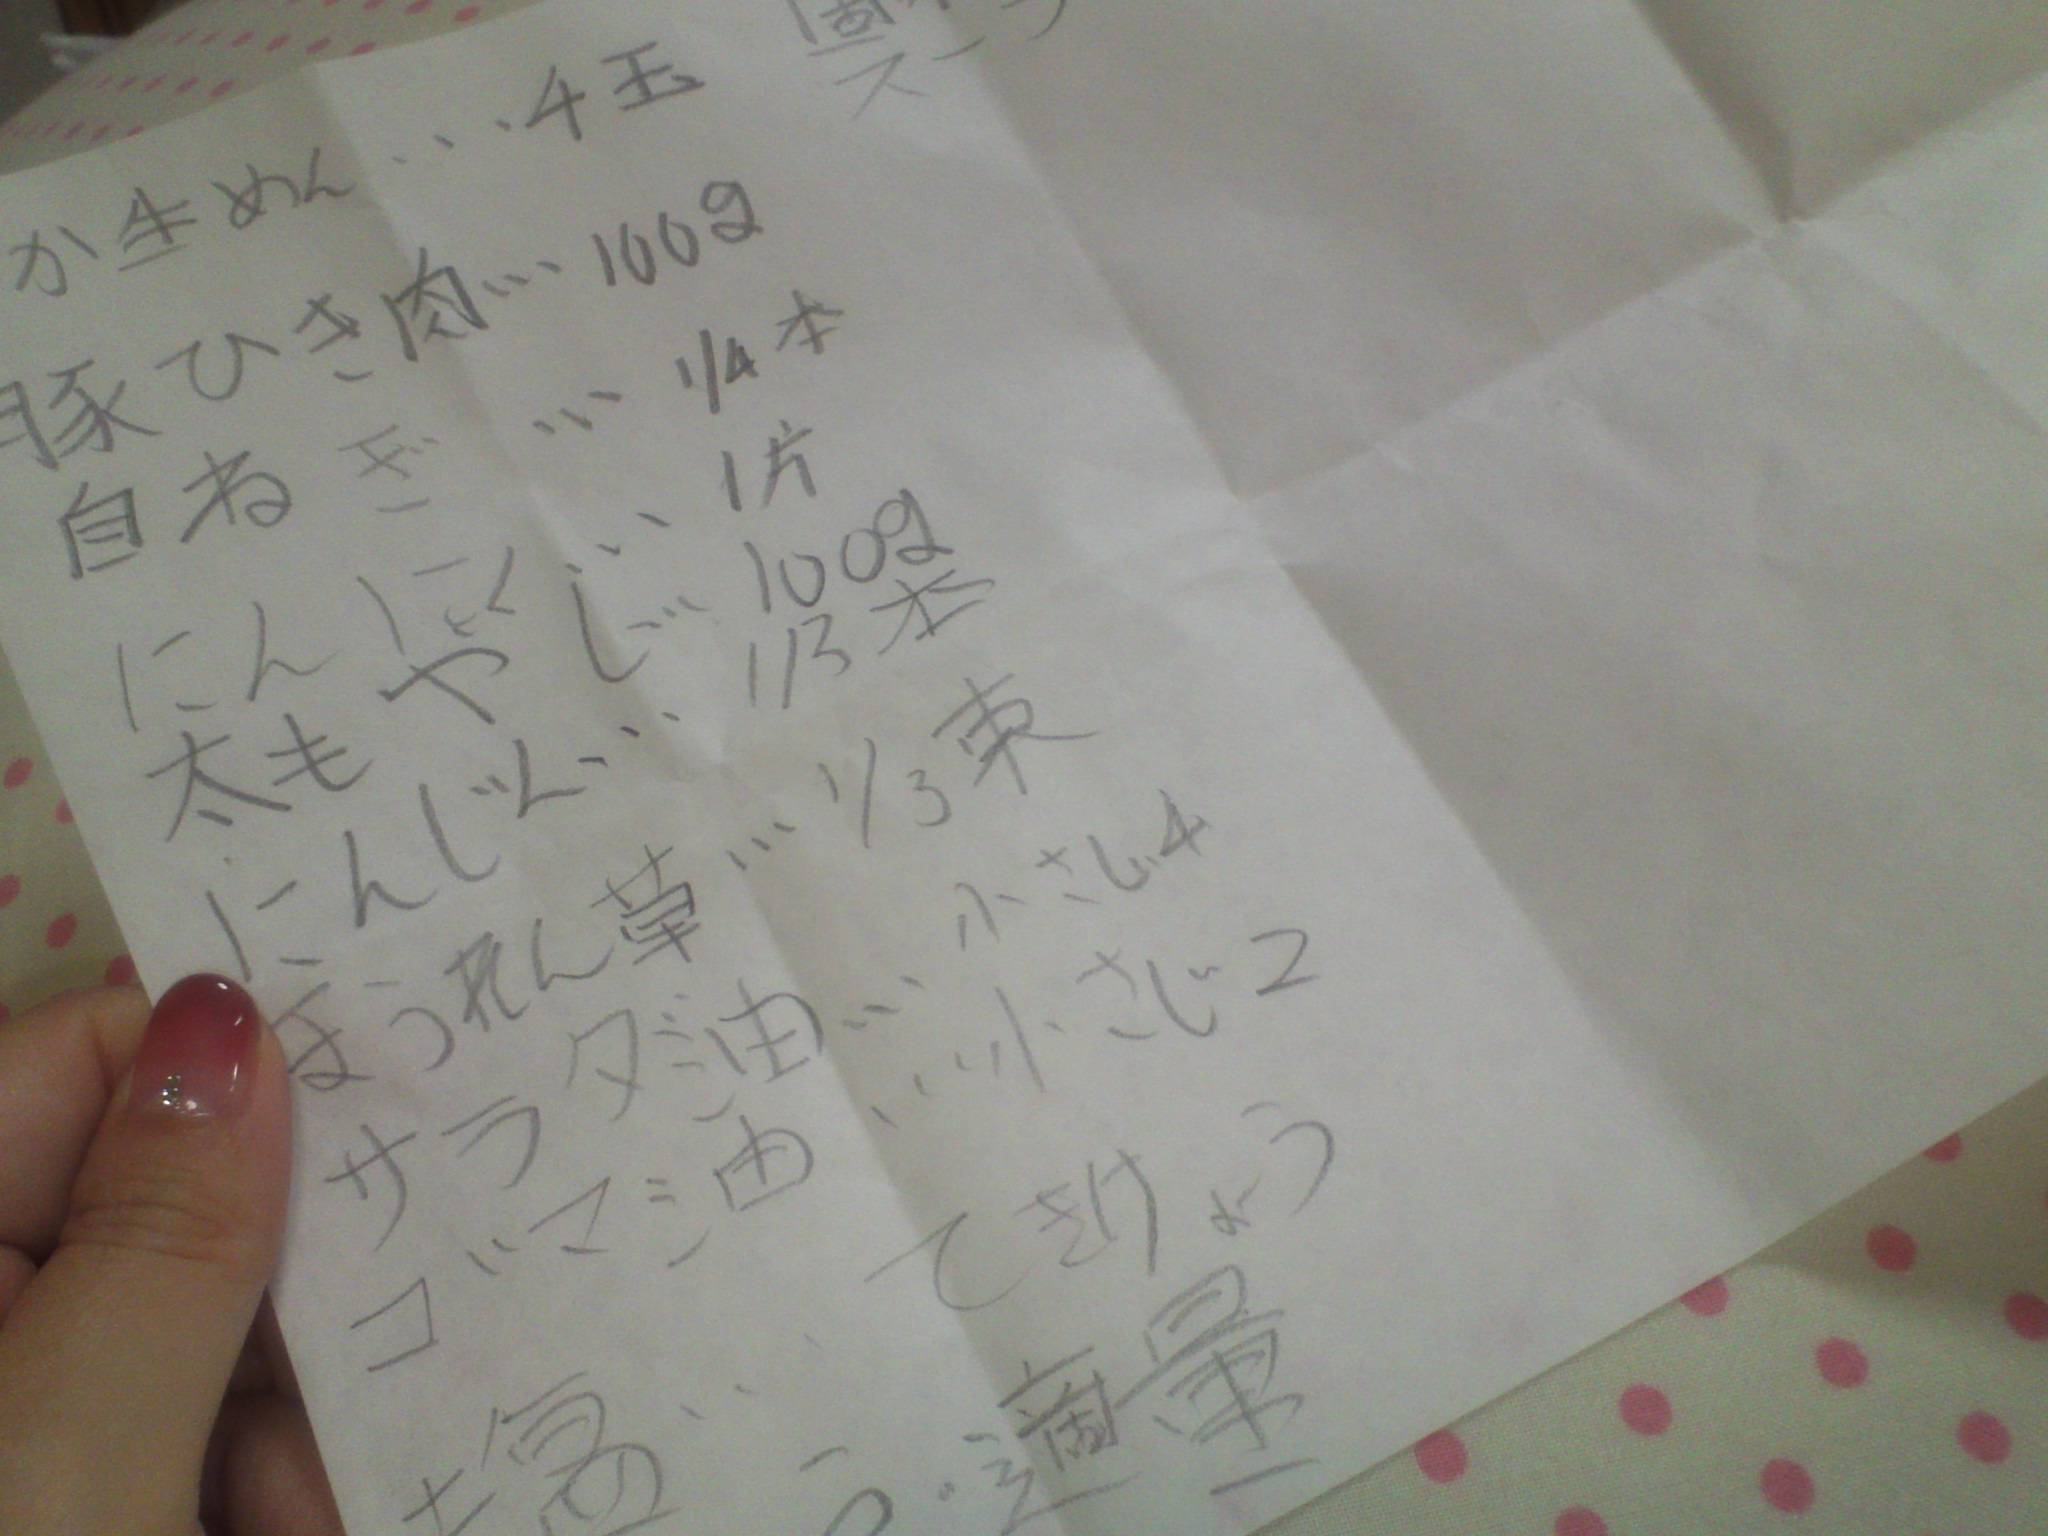 か生めん…4玉
豚ひき肉…100g
白ねぎ…1/4本
にんにく…1片
太もやし…100g
にんじん…1/3本
ほうれん草…1/3束
サラダ油…小さじ4
ゴマ油…小さじ2
塩…てきりょう
う…適量
スープ